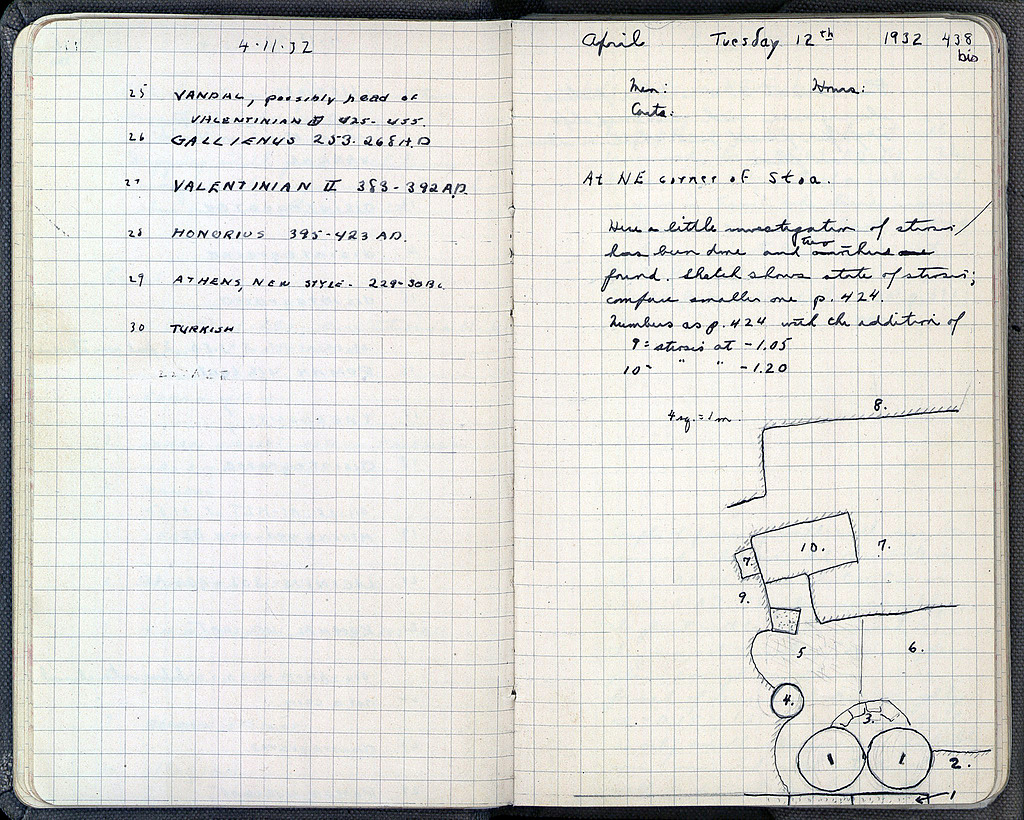 4·11·32
25 VANDAL, possibly head of
VALENTINIAN III 425-455.
26 GALLIENUS 253-268 A.D
27 VALENTINIAN II 383-392 A.D.
28 HONORIUS 395-423 A.D.
29 ATHENS, NEW STYLE - 229-30 B.C.
30 TURKISH
April Tuesday 12th 1932 438
bis
Men: Hours:
Carts:
At NE corner of Stoa.
Here a little investigation of strosis
has been done and two
found. Sketch shows state of strosis;
compare smaller one p. 424.
Numbers as p. 424 with the addition of
9 = strosis at -1.05
10 " " " -1.20
4 sq. = 1 m.
8.
10. 7.
7
9.
5 6.
4.
3.
1 1. 2.
1